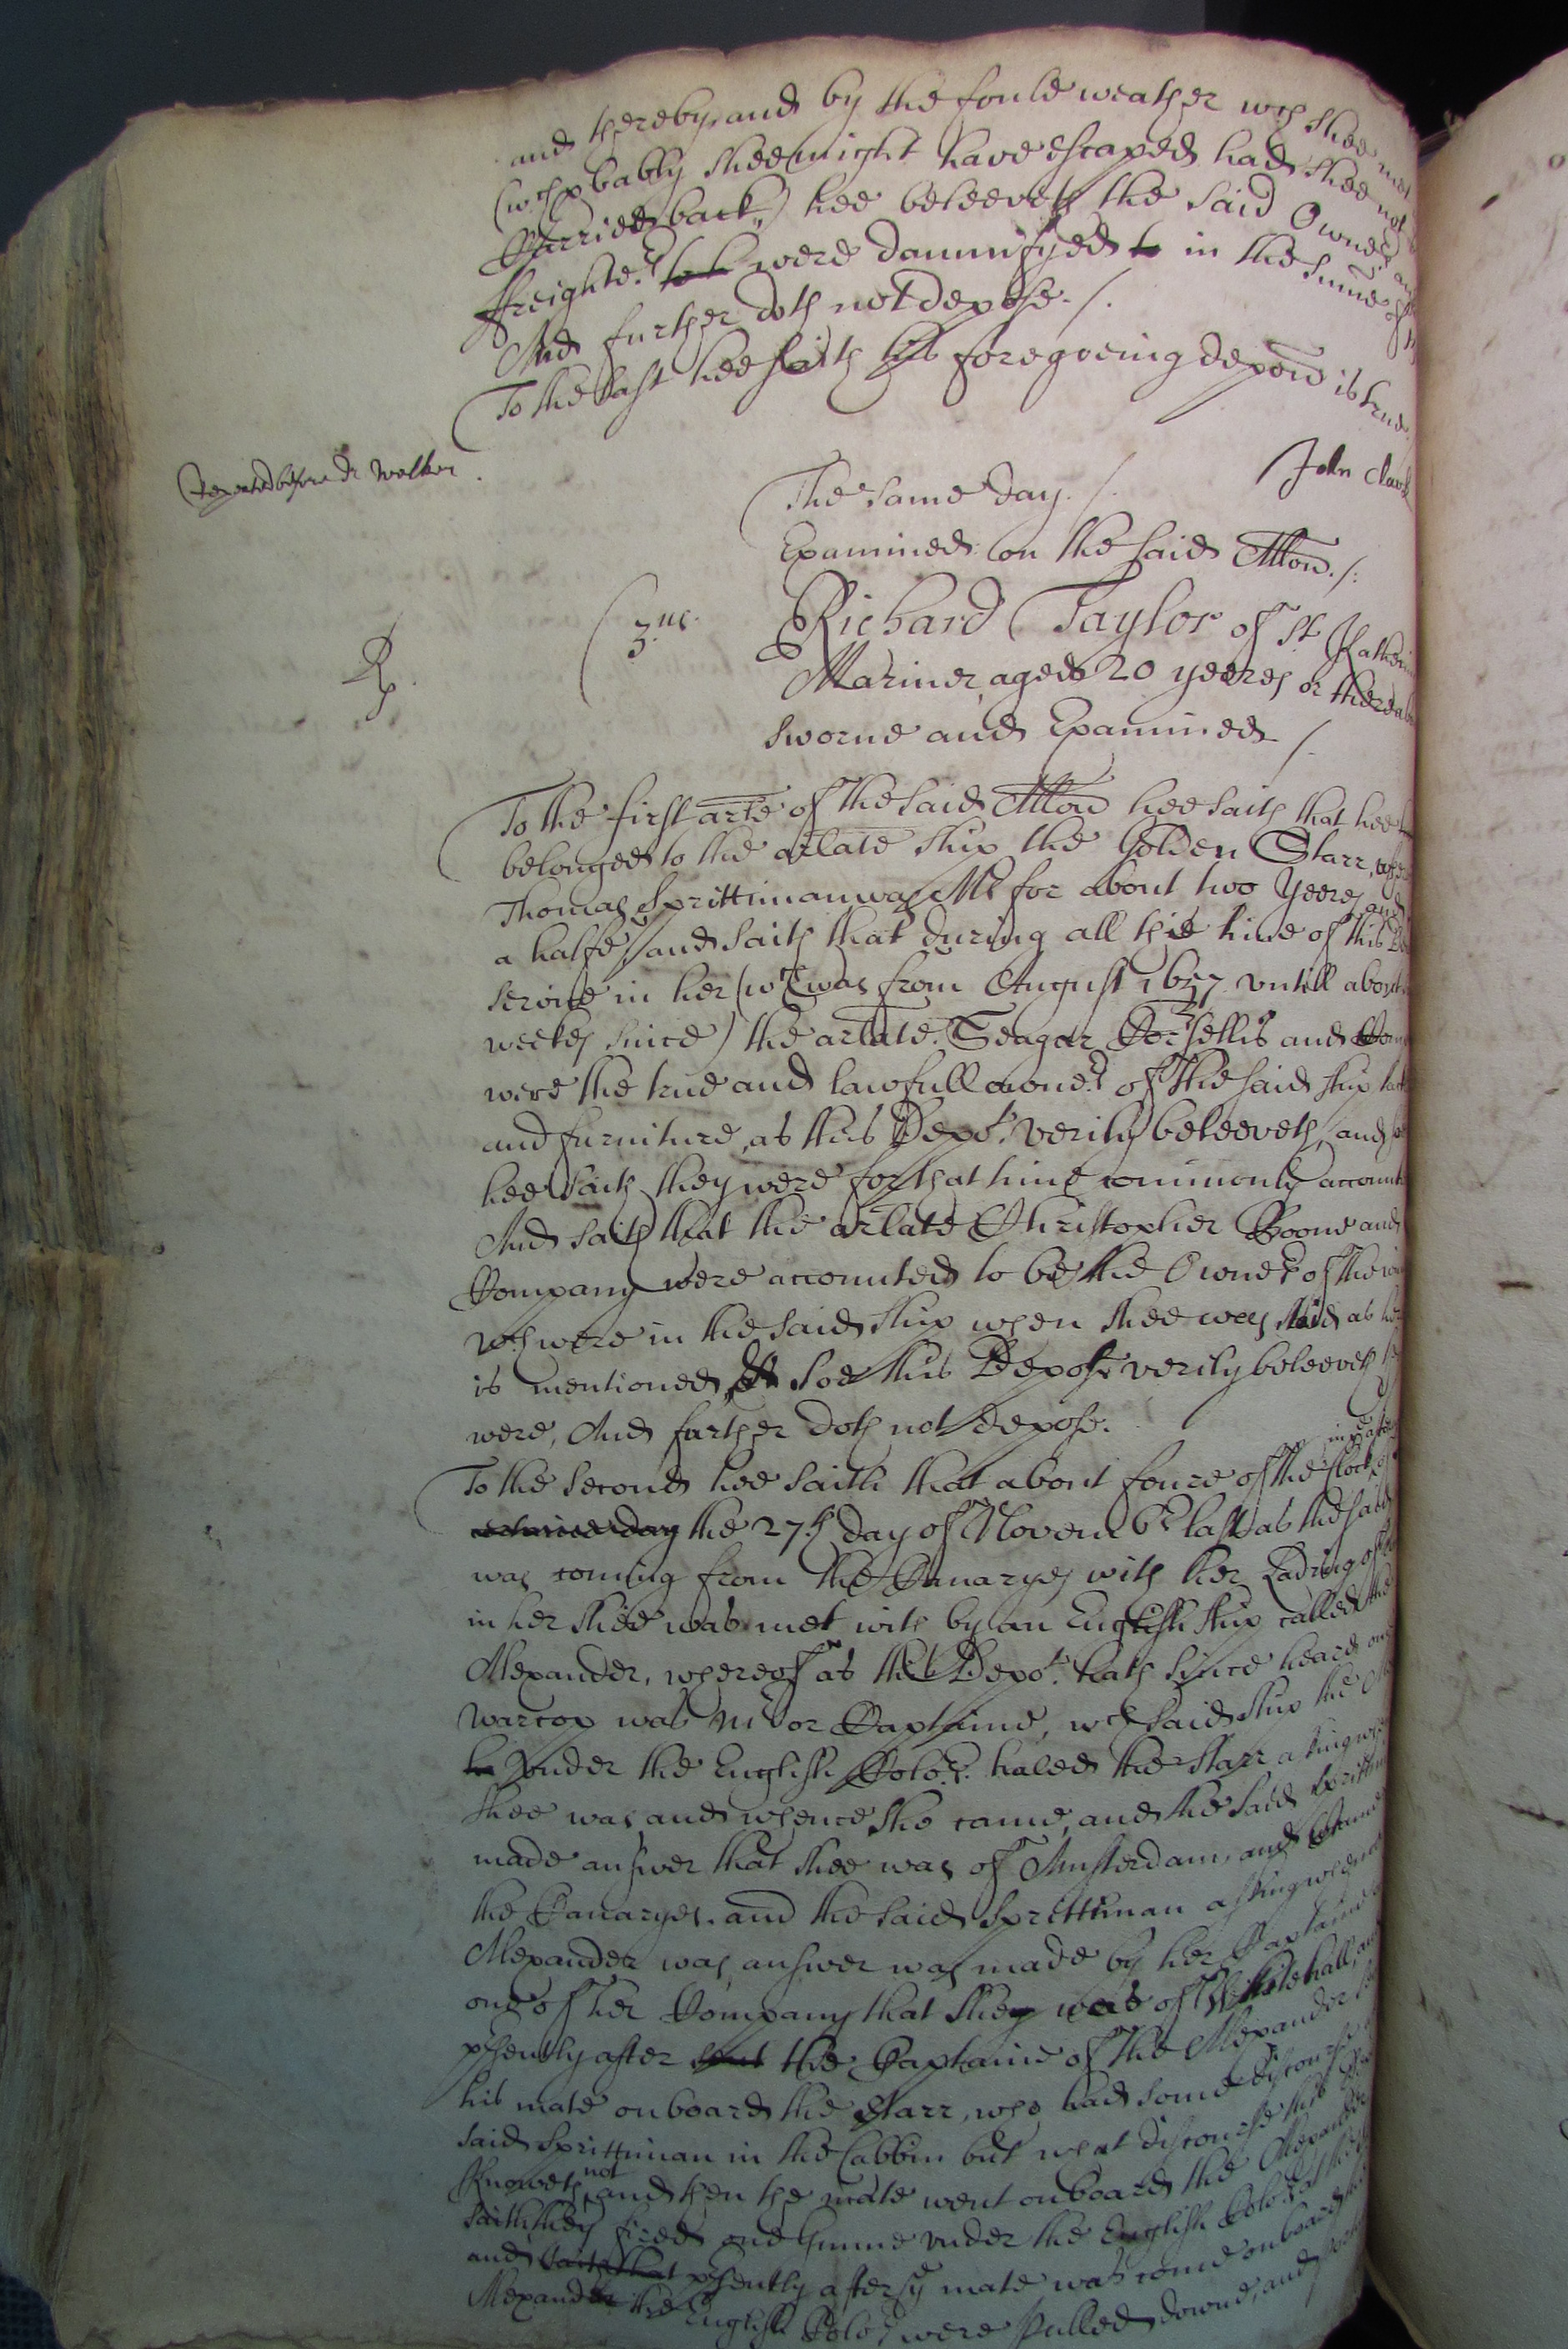 and thereby, and by the foule weather wch shee met
(wch pbably shee might have escaped had shee not
Carried back,) hee beleeveth the said Owners
ffreighters were damnifyed in the summe of
And further doth not depose./.
To the last hee saith his foregoeing depon is true
John Clark
Repeated before dr Walker.
The same day./.
Examined on the said Allon./:
Rp.
3us.
Richard Taylor of St Katherin
Mariner aged 20 yeeres or thereab
sworne and Examined /.
To the first arle of the said Allon hee saith that hee
belonged to the arlate ship the Golden Starr,
Thomas Sprittiman was Mr for about two Yeeres and
a halfe, and saith that during all the time of this
service in her (wch was from August 1657 untill about
weekes since) the arlate Seagar Corsellis and Com
were the true and lawfull owners of the said ship
and furniture, as this Depot. verily beleeveth, and
hee saith they were for that time commonly account
And saith that the arlate Christopher Boone and
Company were accounted to be the Owners of the
wch were in the said ship when shee was as
is mentioned, soe this Depost verily beleeveth
were, And further doth not depose.
To the second hee saith that about foure of the Clock in ye after
the 27th day of Novembr last as the said
was coming from the Canaryes with her Lading of
in her shee was met with by an English ship called the
Alexander, whereof as this Depot. hath since heard one
Warcop was Mr or Captaine, wch said ship the
under the English Colors. haled the Starr asking
shee was and whence she came, and the said Spritti
made answer that shee was of Amsterdam, and came
the Canaryes. and the said Sprittiman asking whence
Alexander was, answer was made by her Captaine
one of her Company that they was of Whitehall, and
psently after the Captaine of the Alexander
his mate onboard the Starr, who had some discourse
said Sprittiman in the Cabbin but what discourse this
Knoweth not, and then the mate went onboard the Alexander
saith they fired one Gunne under the English Colors
and psently after ye mate was come onboard the
Alexander the English Colors were pulled downe, and